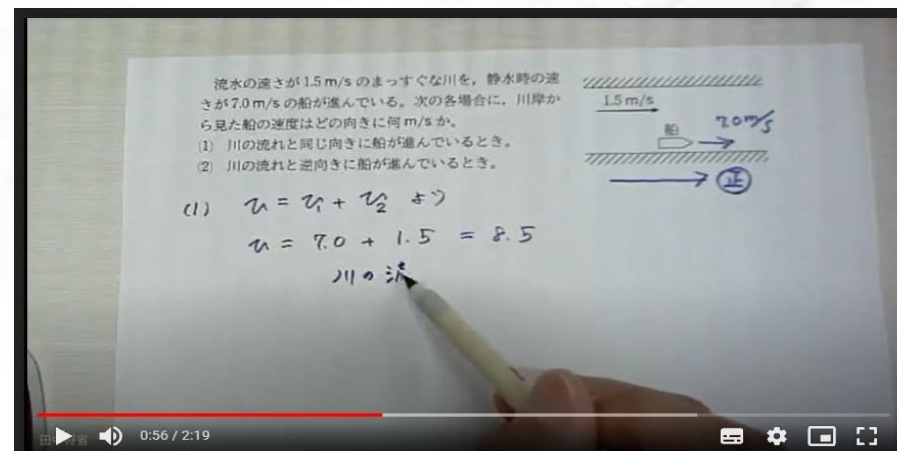 流水の速さが1.5m/sのまっすぐな川を，静水時の速
さが7.0m/sの船が進んでいる。次の各場合に，川岸か
ら見た船の速度はどの向きに何m/sか。
(1) 川の流れと同じ向きに船が進んでいるとき。
(2) 川の流れと逆向きに船が進んでいるとき。
1.5m/s
船
7.0m/s
正
(1) v = v₁ + v₂ より
v = 7.0 + 1.5 = 8.5
川の流
0:56 / 2:19